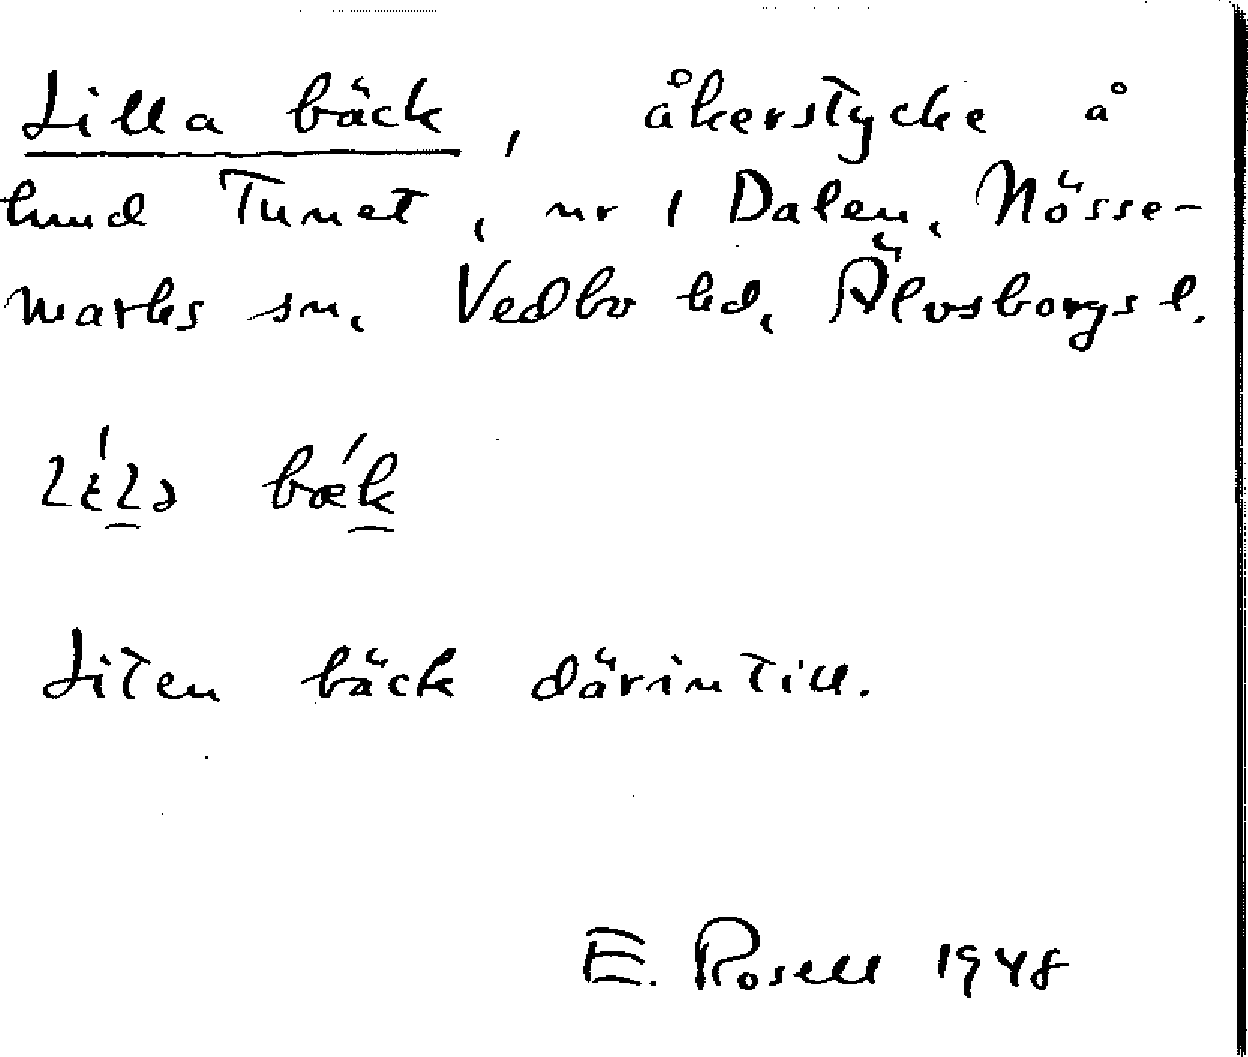 Lilla bäck, åkerstycke å
hmd Tunet, nr 1 Dalen, Nösse-
marks sn, Vedbo hd, Älvsborgs l.
bæ´k
Liten bäck därintill.
E. Rosell 1948